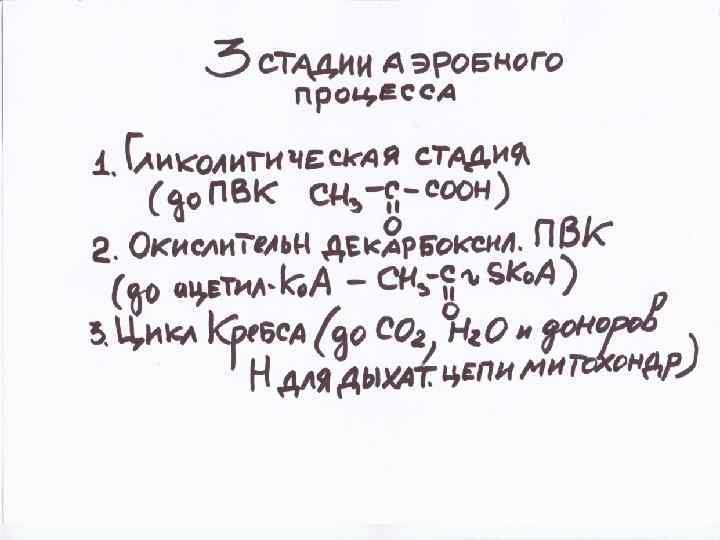 3 СТАДИИ АЭРОБНОГО
ПРОЦЕССА
1. ГЛИКОЛИТИЧЕСКАЯ СТАДИЯ
(до ПВК CH3–C–COOH)
||
O
2. ОКИСЛИТЕЛЬН ДЕКАРБОКСИЛ. ПВК
(до АЦЕТИЛ-КоА – CH3–C~SКоА)
||
O
3. ЦИКЛ КРЕБСА (до CO2, H2O и доноров
Н для дыхат. цепи митохондр)